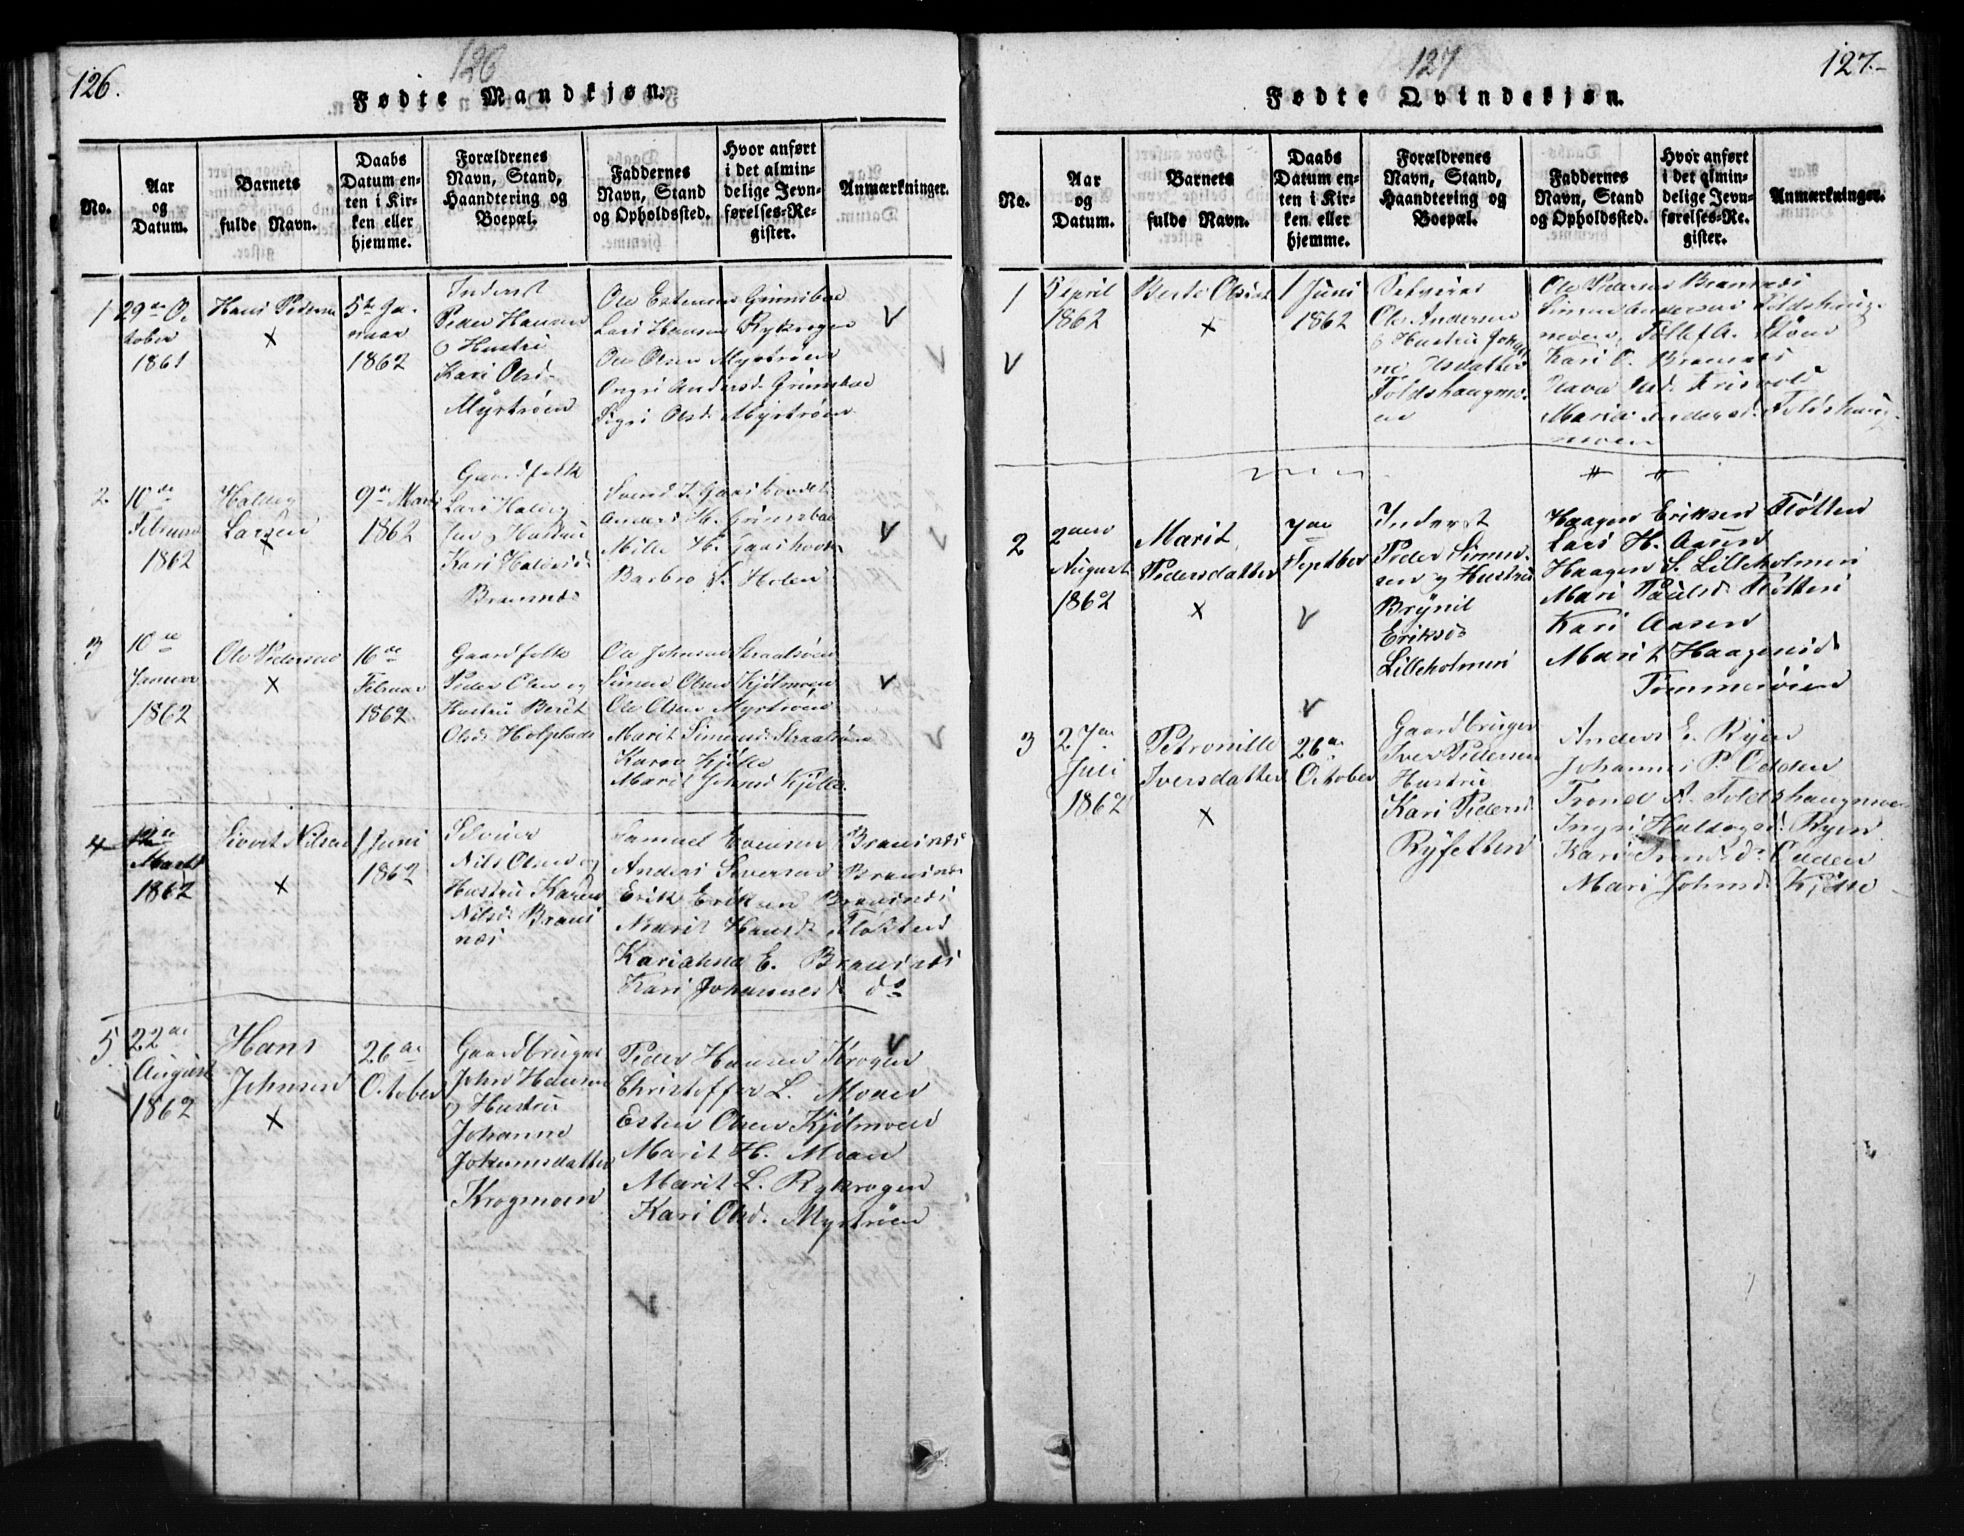 126.
126
Fødte Mandkjøn.
No.
Aar og Datum.
Barnets fulde Navn.
Daabs Datum enten i Kirken eller hjemme.
Forældrenes Navn, Stand, Haandtering og Boepæl.
Faddernes Navn, Stand og Opholdssted.
Hvor anført i det almindelige Jevnførelses-Register.
Anmærkninger.
1
29de Oc
tober
1861
Hans Pedersen
5te Ja-
nuar
1862
Inderst
Peder Hansen
og Hustru
Kari Olsd.
Myrtrøen
Ole Estensen Grimsboe
Lars Hansen Rykrogen
Ole Olsen Myrtrøen
Ingri Andersd. Grimsboe
Sigri Olsd. Myrtrøen
2
10de
Februar
1862
Haldog
Larsen
9de Marts
1862
Gaardfolk
Lars Haldog
sen og Hustru
Kari Haldogsd.
Bransnes
Svend T. Gaashovdet
Anders H. Grimsboe
Mille H. Gaashovdet
Barbro S. Holen
3
10de
Januar
1862
Ole Pedersen
16de
Februar
1862
Gaardfolk
Peder Olsen og
Hustru Beret
Olsd. Holpladsen
Ole Johnsen Straalsøen
Simen Olsen Kjølmoen
Ole Olsen Myrtrøen
Marit Simensd. Straalsøen
Karen Kjølle
Marit Johnsd. Kjølle
4
12de
Marts
1862
Sivert Nilsen
1 Juni
1862
Selveier
Nils Olsen og
Hustru Karen
Nilsd. Brans
næs
Samuel Evensen Bransnæs
Anders Siversen Bransnæs
Erik Eriksen Bransnæs
Marit Hansd. Flottend
Kariahna E. Bransnæs
Kari Johannesd. do
5
22de
August
1862
Hans
Johnsen
26de
October
Gaardbruger
John Hansen
og Hustru
Johanne
Johannsdatter
Krogmoen
Peder Hansen Krogen
Christoffer L. Moen
Esten Olsen Kjølmoen
Marit H. Moen
Marit L. Rykrogen
Kari Olsd. Myrtrøen
127
127.-
Fødte Qvindekjøn.
No.
Aar og Datum.
Barnets fulde Navn.
Daabs Datum enten i Kirken eller hjemme.
Forældrenes Navn, Stand, Haandtering og Boepæl.
Faddernes Navn, Stand og Opholdssted.
Hvor anført i det almindelige Jevnførelses-Register.
Anmærkninger.
1
5 April
1862
Berte Olsdat
1 Juni
1862
Selveier
Ole Andersen
og Hustru Johan
ne Olsdatter
Foldshaugmo
en
Ole Pedersen Bransnæs
Simen Andersen Foldshaug
moen
Kari O. Bransnæs
Maria Andersd. Foldshaug
moen
2
2den
August
1862
Marit
Pedersdatter
7de
Septber
Inderst
Peder Simen
sen og Hustru
Brynil
Eriksd.
Lilleholmen
Haagen Eriksen Fløtten
Lars H. Aasen
Haagen S. Lilleholmen
Mari Paulsd. Fløtten
Kari Aasen
Marit Haagensd.
Tømmerøien
3
27de
Juli
1862
Petronille
Iversdatter
26de
October
Gaardbruger
Iver Pedersen
Hustru
Kari Pedersd.
Ryfetten
Anders E. Ryen
Johannes P. Odden
Trond A. Foldshaugmoen
Ingri Haldogsd. Ryen
Kari Trondsd. Odden
Mari Johnsd. Kjølle